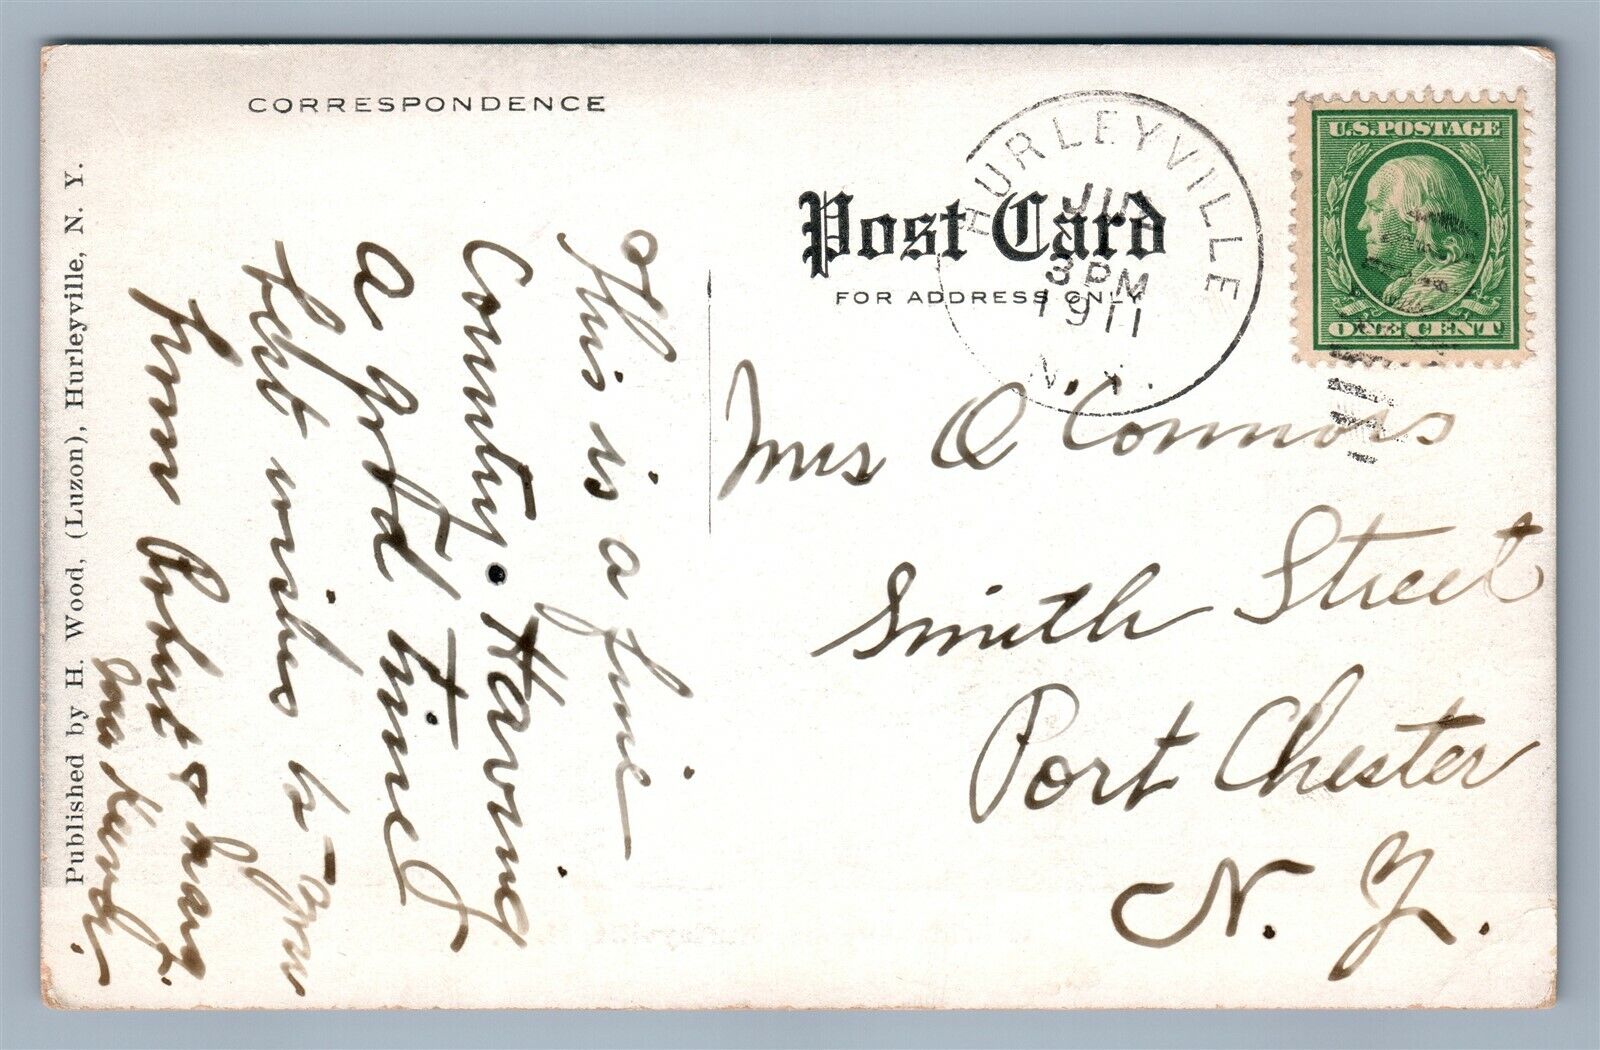 CORRESPONDENCE
Post Card
FOR ADDRESS ONLY
HURLEYVILLE
3 PM
1911
N.Y.
U.S. POSTAGE
ONE CENT
Published by H. Wood, (Luzon), Hurleyville, N. Y.
This is a fine
Country. Having
a good time
best wishes to you
from Robert & Mary
and
Mrs O Connors
Smith Street
Port Chester
N. Y.